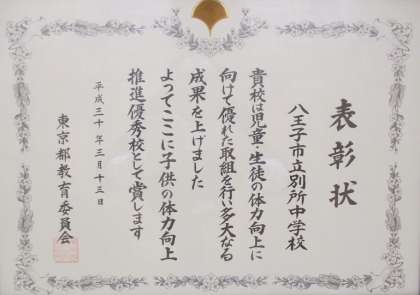 表彰状
八王子市立別所中学校
貴校は児童・生徒の体力向上に
向けて優れた取組を行い多大なる
成果を上げました
よってここに子供の体力向上
推進優秀校として賞します
平成三十年三月十三日
東京都教育委員会